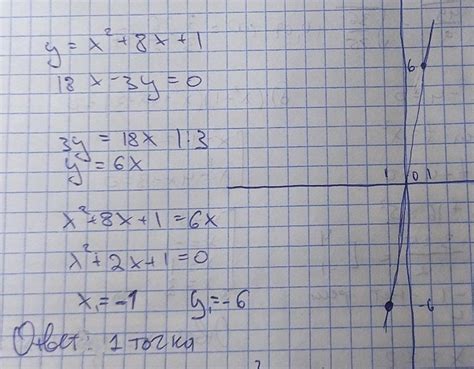 y = x² + 8x + 1
18x - 3y = 0
3y = 18x | : 3
y = 6x
x² + 8x + 1 = 6x
x² + 2x + 1 = 0
x₁ = -1 y₁ = -6
Ответ: 1 точка
6
1 0 1
-6